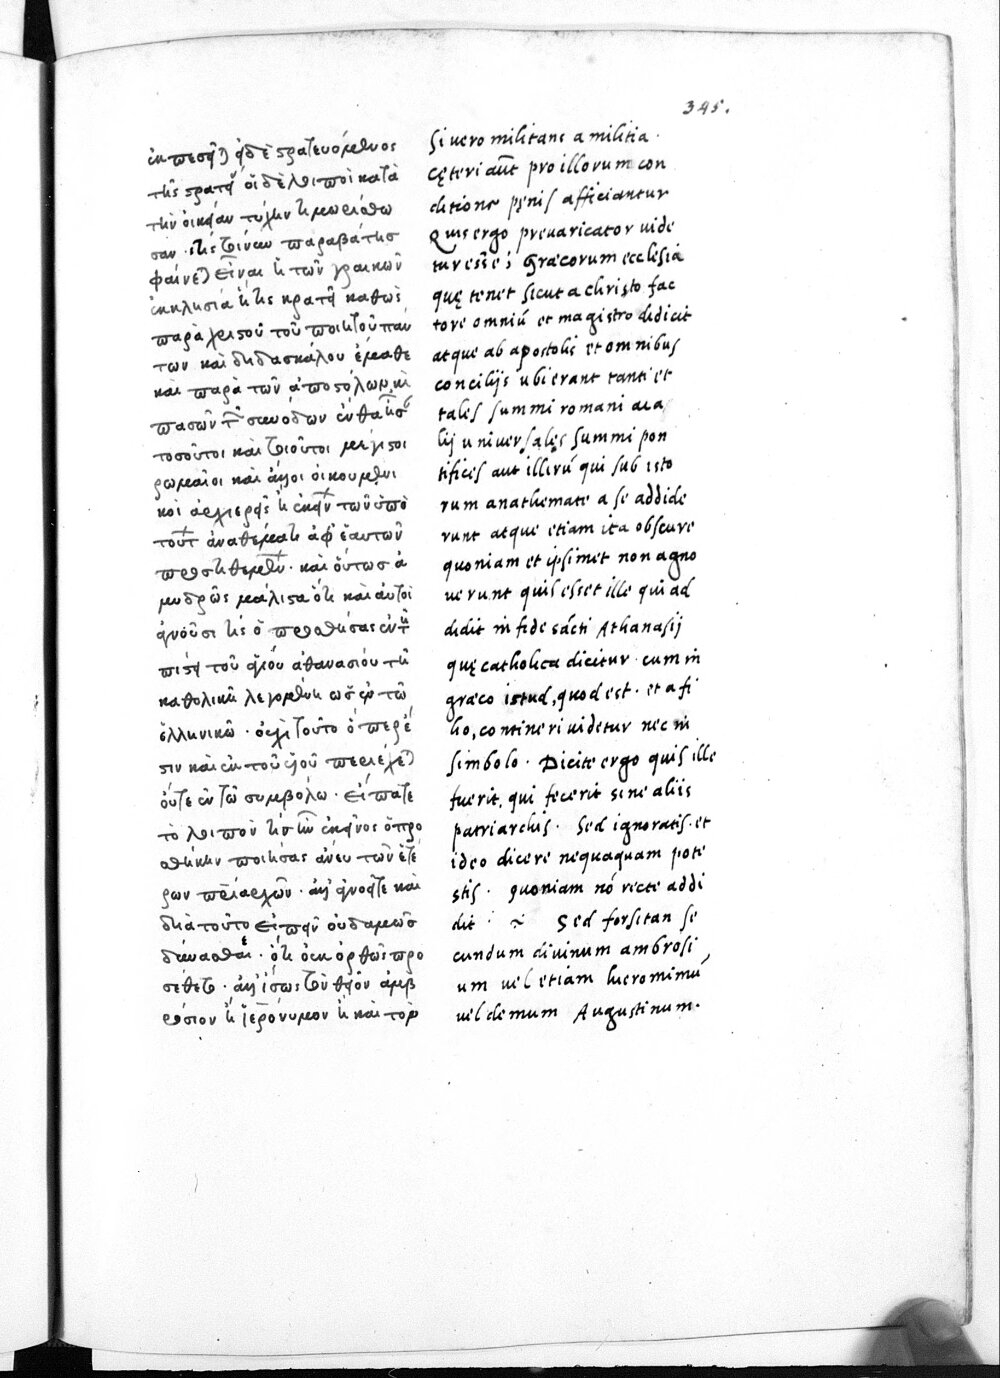 345.
ἐκπεσεῖται, εἰ δὲ στρατευόμενος
τῆς στρατείας οἱ δὲ λοιποὶ κατὰ
τὴν οἰκείαν τύχην τιμωρείσθω
σαν. τίς τοίνυν παραβάτης
φαίνεται εἶναι ἡ τῶν γραικῶν
ἐκκλησία ἥτις κρατεῖ καθὼς
παρὰ χριστοῦ τοῦ ποιητοῦ πάν
των καὶ διδασκάλου ἔμαθε
καὶ παρὰ τῶν ἀποστόλων καὶ
πασῶν τῶν συνόδων ἔνθα ἦσαν
τοσοῦτοι καὶ τοιοῦτοι μέγιστοι
ρωμαῖοι καὶ ἄλλοι οἰκουμενι
κοὶ ἀρχιερεῖς ἢ ἐκείνων τῶν ὑπὸ
τούτων ἀναθέματι ἀφ' ἑαυτῶν
προστιθεμένων. καὶ οὕτωσ ἀ
μυδρῶς μάλιστα ὅτι καὶ αὐτοὶ
ἀγνοοῦσι τίς ὁ προσθήσας ἐν τῇ
πίστει τοῦ ἁγίου ἀθανασίου τῇ
καθολικῇ λεγομένῃ ὡς ἐν τῶ
ἑλληνικῶ. οὐχὶ τοῦτο ὅπερ ἐ
στιν καὶ ἐκ τοῦ υἱοῦ περιέχεται
οὔτε ἐν τῶ συμβόλω. εἴπατε
τὸ λοιπὸν τίς ἦν ἐκεῖνος ὁ προ
σθήκην ποιήσας ἄνευ τῶν ἑτέ
ρων πατριαρχῶν. ἀλλ' ἀγνοεῖτε καὶ
διὰ τοῦτο εἰπεῖν οὐδαμῶς
δύνασθαι. ὅτι οὐκ ὀρθῶς προ
σέθετο. ἀλλ' ἴσως τὸν θεῖον ἀμβ
ρόσιον ἢ ἱερόνυμον ἢ καὶ τὸν
Si uero militans a militia.
Cęteri aut pro illorum con
ditione pęnis afficiantur
Quis ergo preuaricator uide
tur esse; Græcorum ecclesia
quę tenet sicut a christo fac
tore omniū et magistro didicit
atque ab apostolis et omnibus
concilijs ubi erant tanti et
tales summi romani ac a
lij uniuersales summi pon
tifices aut illorū qui sub isto
rum anathemate a se addide
runt atque etiam ita obscure
quoniam et ipsimet non agno
uerunt quis esset ille qui ad
didit in fide sācti Athanasij
quę catholica dicitur. cum in
græco istud, quod est. et a fi
lio, contineri uidetur nec in
simbolo. Dicite ergo quis ille
fuerit, qui fecerit sine aliis
patriarchis. Sed ignoratis. et
ideo dicere nequaquam pote
stis. quoniam nō recte addi
dit. ~ Sed forsitan se
cundum diuinum ambrosi
um uel etiam hieronimū
uel demum Augustinum.